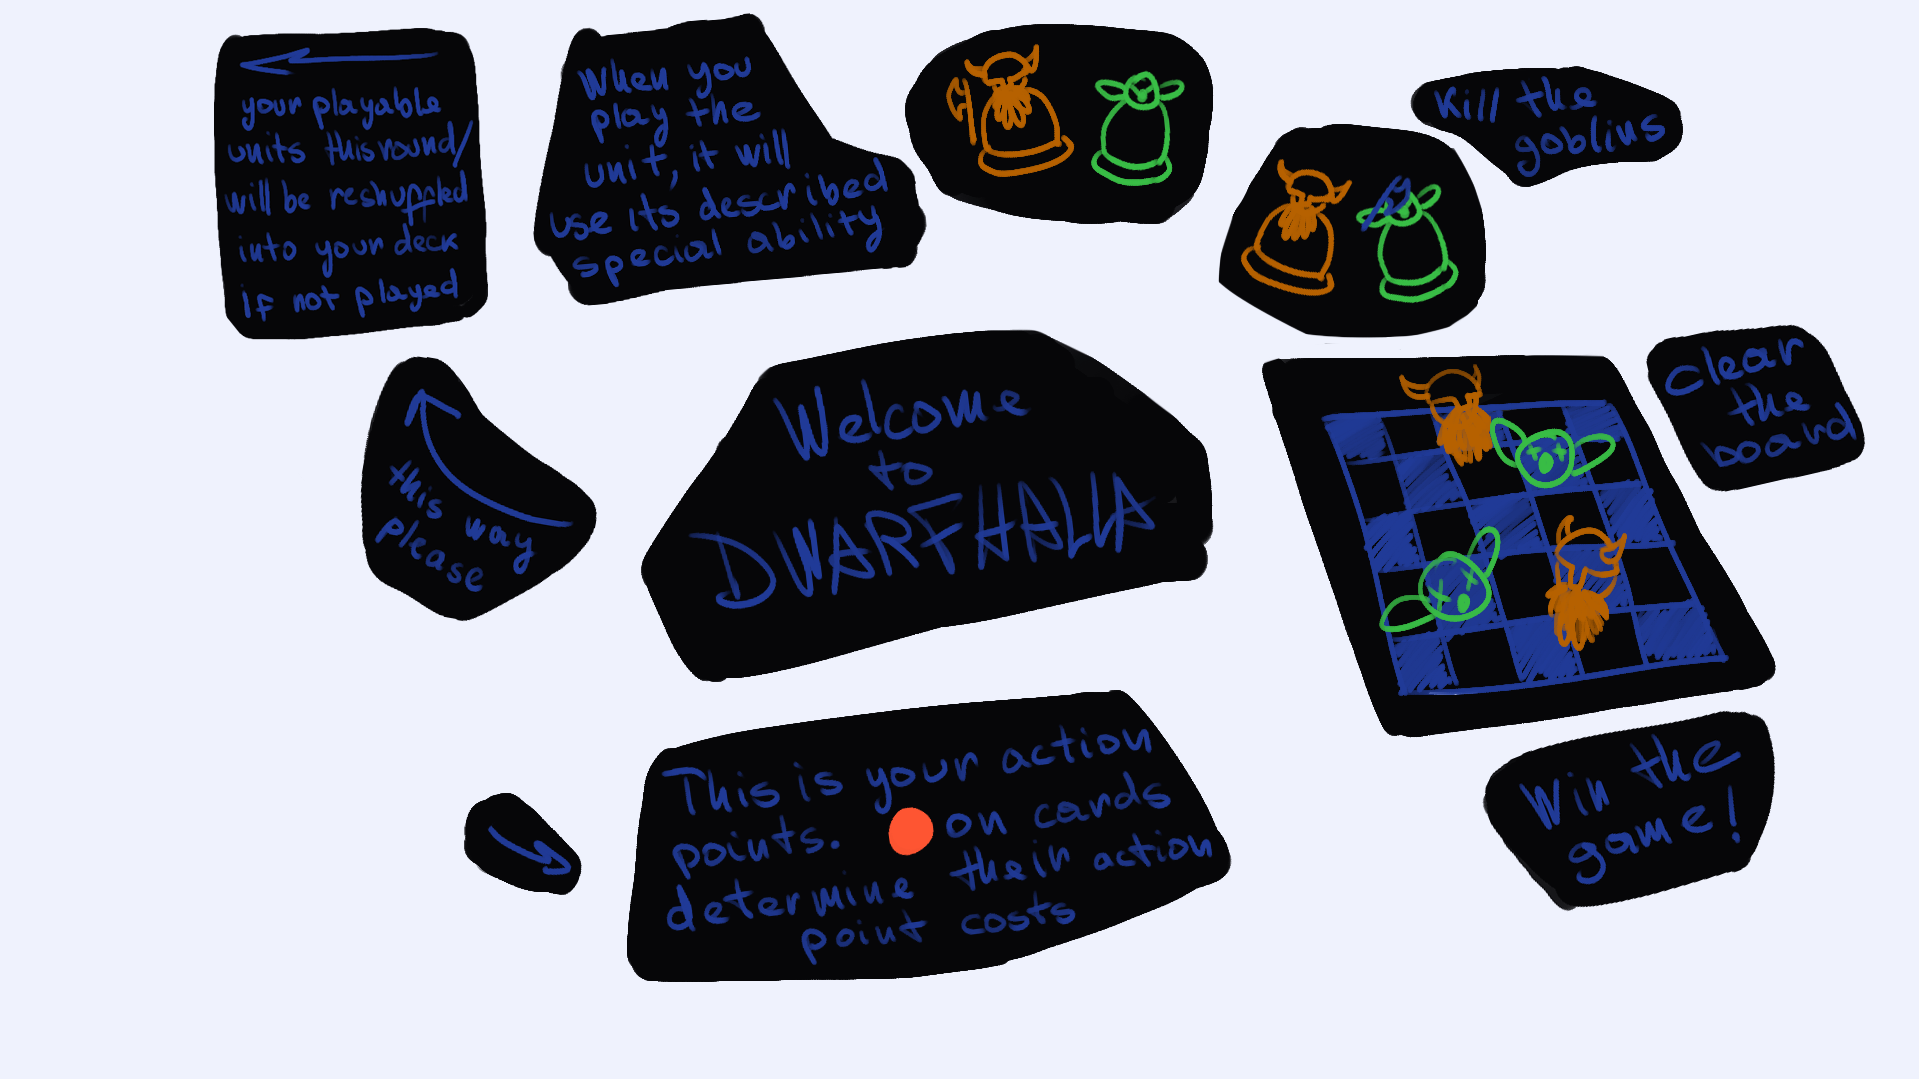 your playable
units this round/
will be reshuffled
into your deck
if not played
When you
play the
unit, it will
use its described
special ability
Kill the
goblins
Clear
the
board
this way
please
Welcome
to
DWARFHALLA
This is your action
points. on cards
determine their action
point costs
Win the
game!